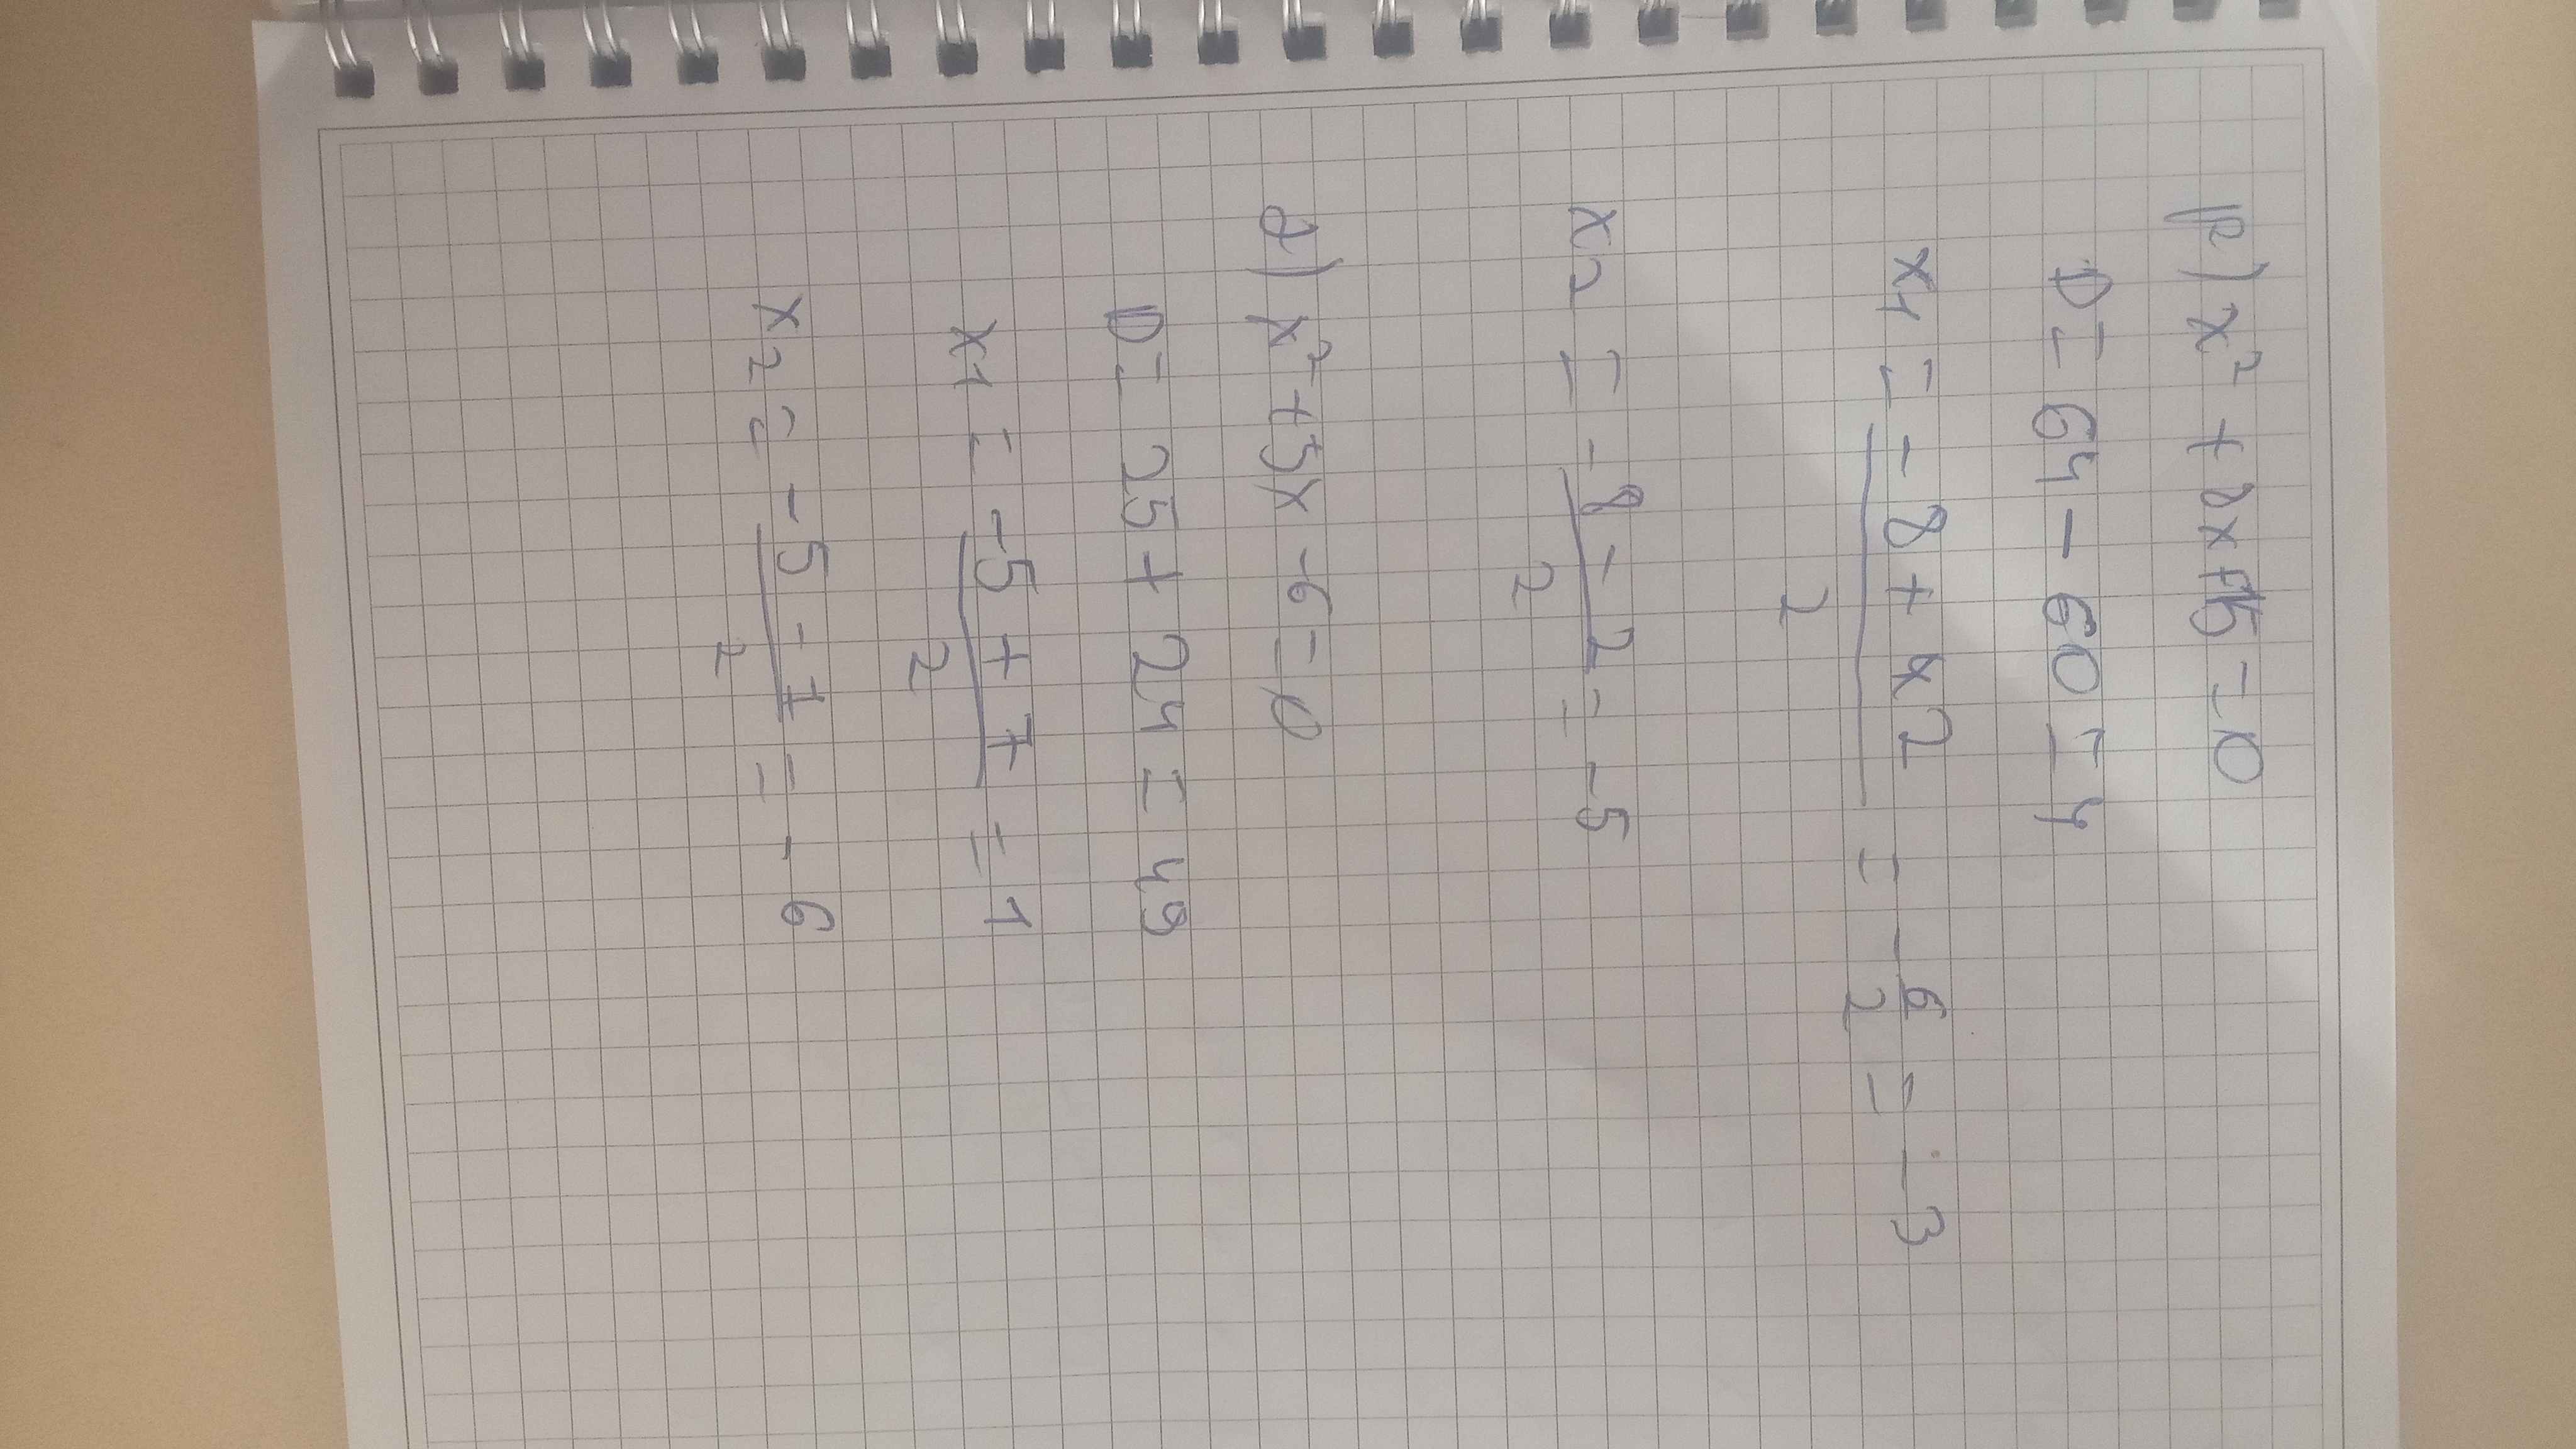 в) x² + 8x + 15 = 0
D = 64 - 60 = 4
x1 = -8 + 2/2 = -6/2 = -3
x2 = -8 - 2/2 = -5
д) x² + 5x - 6 = 0
D = 25 + 24 = 49
x1 = -5 + 7/2 = 1
x2 = -5 - 7/2 = -6